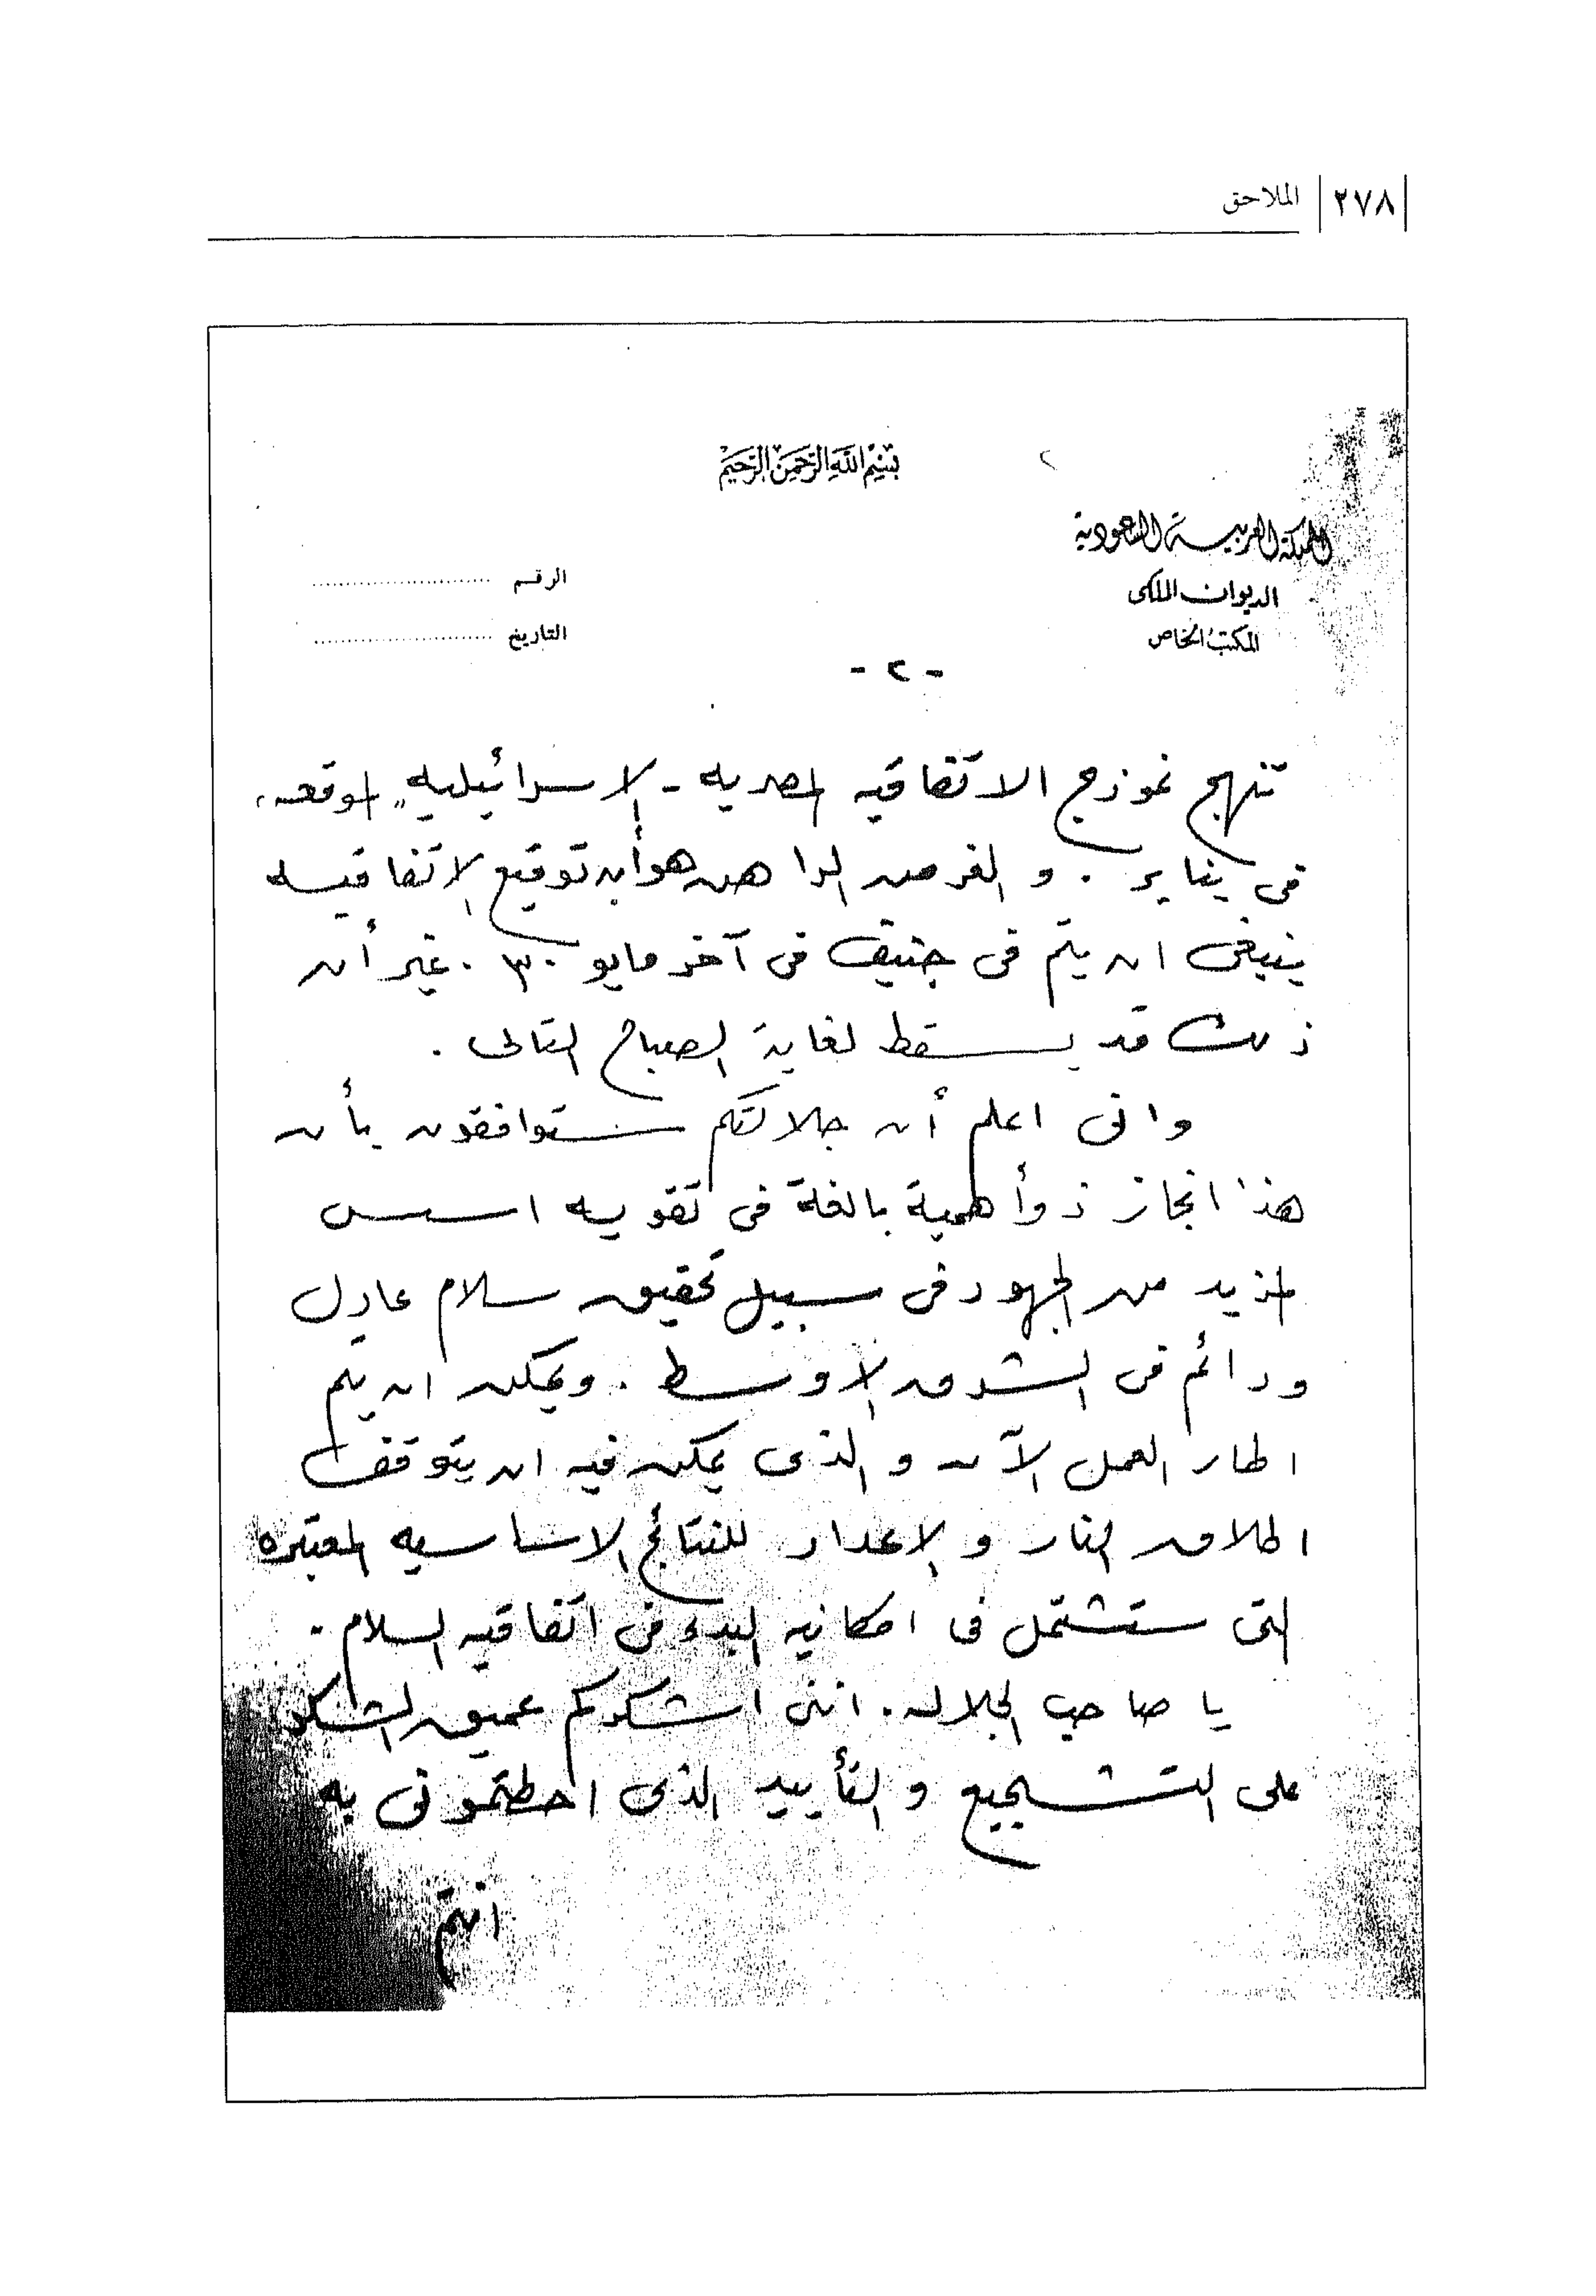 ٢٧٨ الملاحق
بسم الله الرحمن الرحيم
٢
المملكة العربية السعودية
الديوان الملكى
المكتب الخاص
الرقم
التاريخ
- ٢ -
تنهج نموذج الاتفاقيه المصريه - الاسرائيليه الموقعه
فى يناير . والغرض الراهن هو أن توقيع الاتفاقيه
ينبغى ان يتم فى جنيف فى آخر مايو ٣٠ . غير أن
ذلك قد يسقط لغاية الصباح التالى .
وانى اعلم أن جلالتكم ستوافقون بأن
هذا انجاز ذو أهمية بالغة فى تقويه اسس
المزيد من الجهود فى سبيل تحقيق سلام عادل
ودائم فى الشرق الاوسط . ويمكن ان يتم
اطار العمل الآن والذى يمكن فيه ان يتوقف
اطلاق النار والإعداد للنتائج الاساسيه المعتبره
التى ستشتمل فى امكانيه البدء فى اتفاقيه السلام .
يا صاحب الجلاله . اننى اشكركم عميق الشكر
على التشجيع والتأييد الذى احطتمونى به
انتم